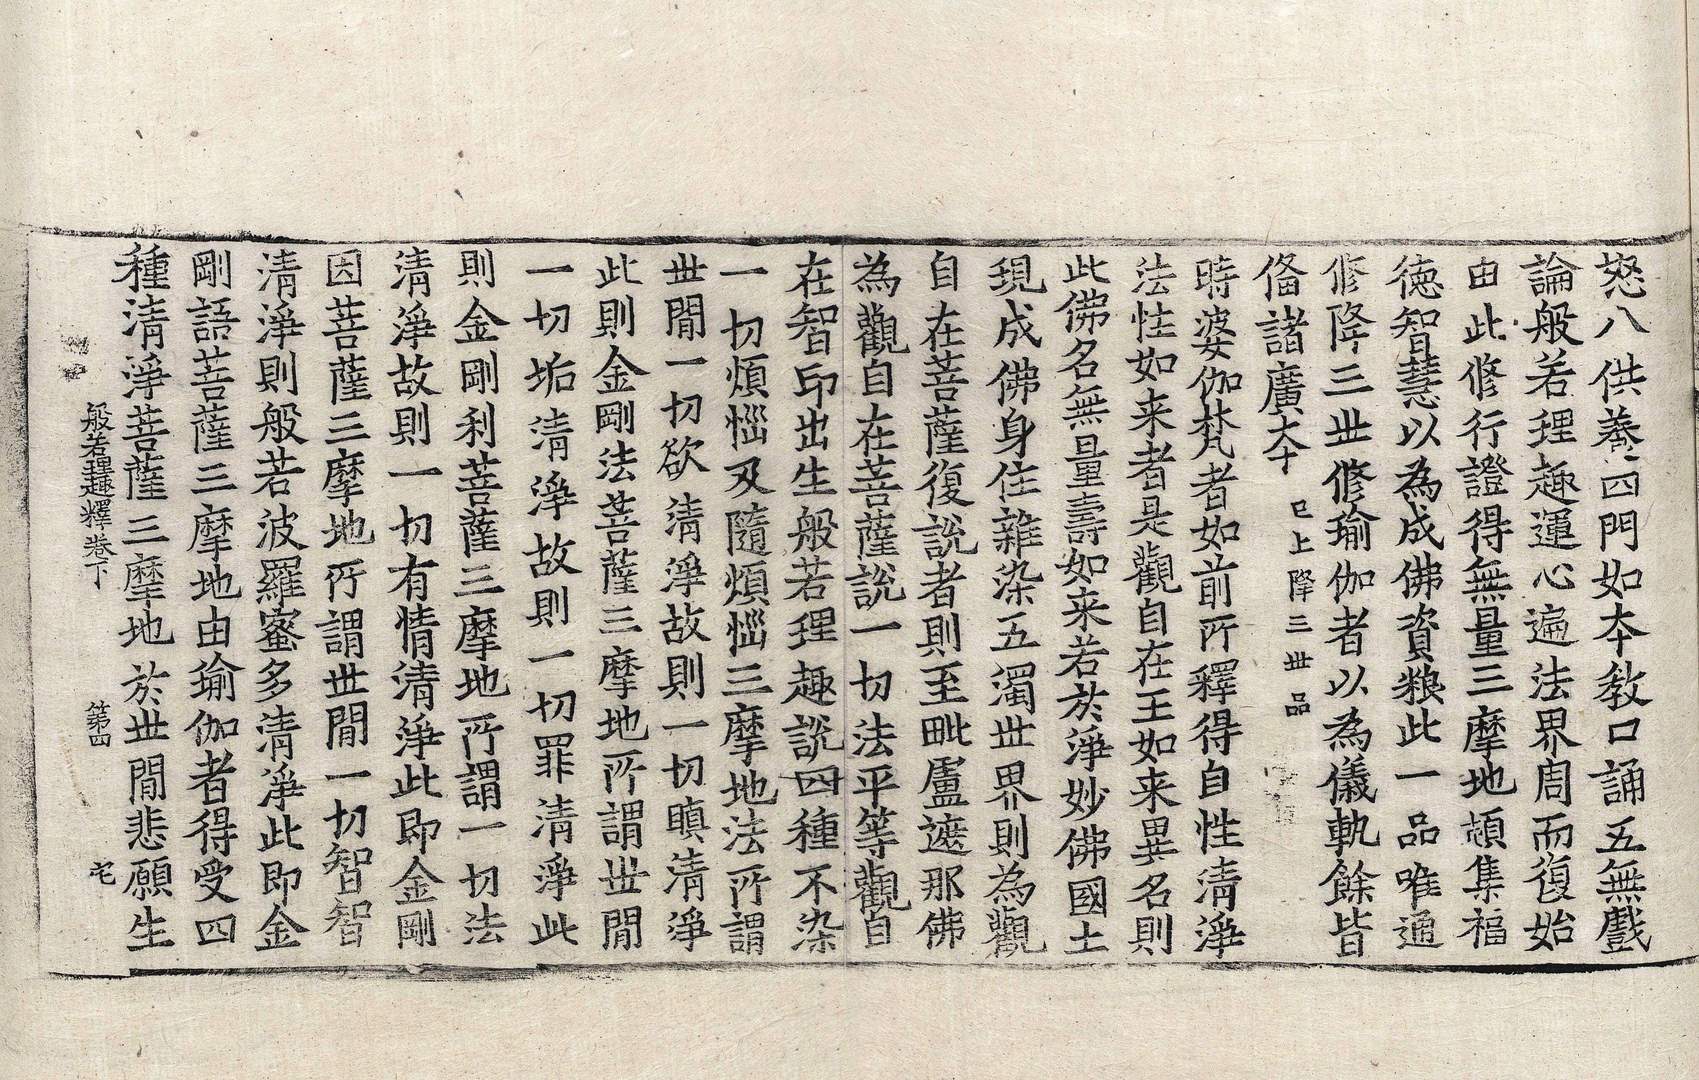 怒八供養四門如本教口誦五無戲
論般若理趣運心遍法界周而復始
由此修行證得無量三摩地頓集福
德智慧以為成佛資糧此一品唯通
修降三世修瑜伽者以為儀軌餘皆
俻諸廣本 已上降三世品
時婆伽梵者如前所釋得自性清淨
法性如来者是觀自在王如来異名則
此佛名無量壽如来若於淨妙佛國土
現成佛身住雜染五濁世界則為觀
自在菩薩復説者則至毗盧遮那佛
為觀自在菩薩說一切法平等觀自
在智印出生般若理趣説四種不染
一切煩惱及隨煩惱三摩地法所謂
世間一切欲清淨故則一切瞋清淨
此則金剛法菩薩三摩地所謂世間
一切垢清淨故則一切罪清淨此
則金剛利菩薩三摩地所謂一切法
清淨故則一切有情清淨此即金剛
因菩薩三摩地所謂世間一切智智
清淨則般若波羅蜜多清淨此即金
剛語菩薩三摩地由瑜伽者得受四
種清淨菩薩三摩地於世間悲願生
般若理趣釋卷下 第四 宅